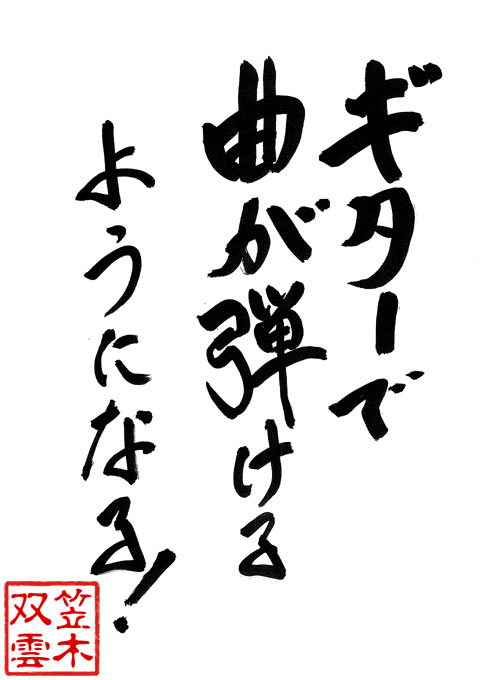 ギターで
曲が弾ける
ようになる!
笠木
双雲